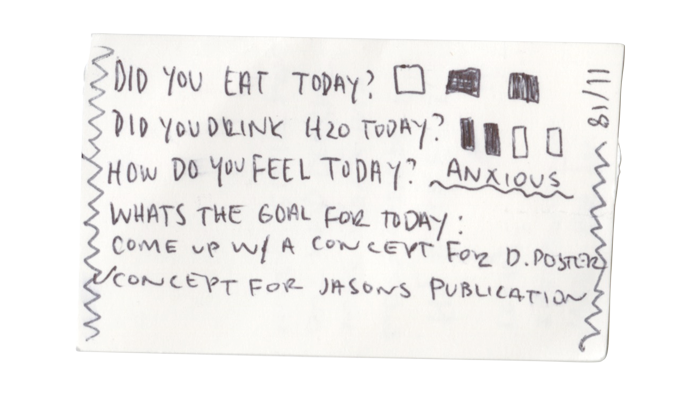 DID YOU EAT TODAY?
DID YOU DRINK H2O TODAY?
HOW DO YOU FEEL TODAY? ANXIOUS
WHATS THE GOAL FOR TODAY:
COME UP W/ A CONCEPT FOR D.POSTER
✓CONCEPT FOR JASONS PUBLICATION
11/18